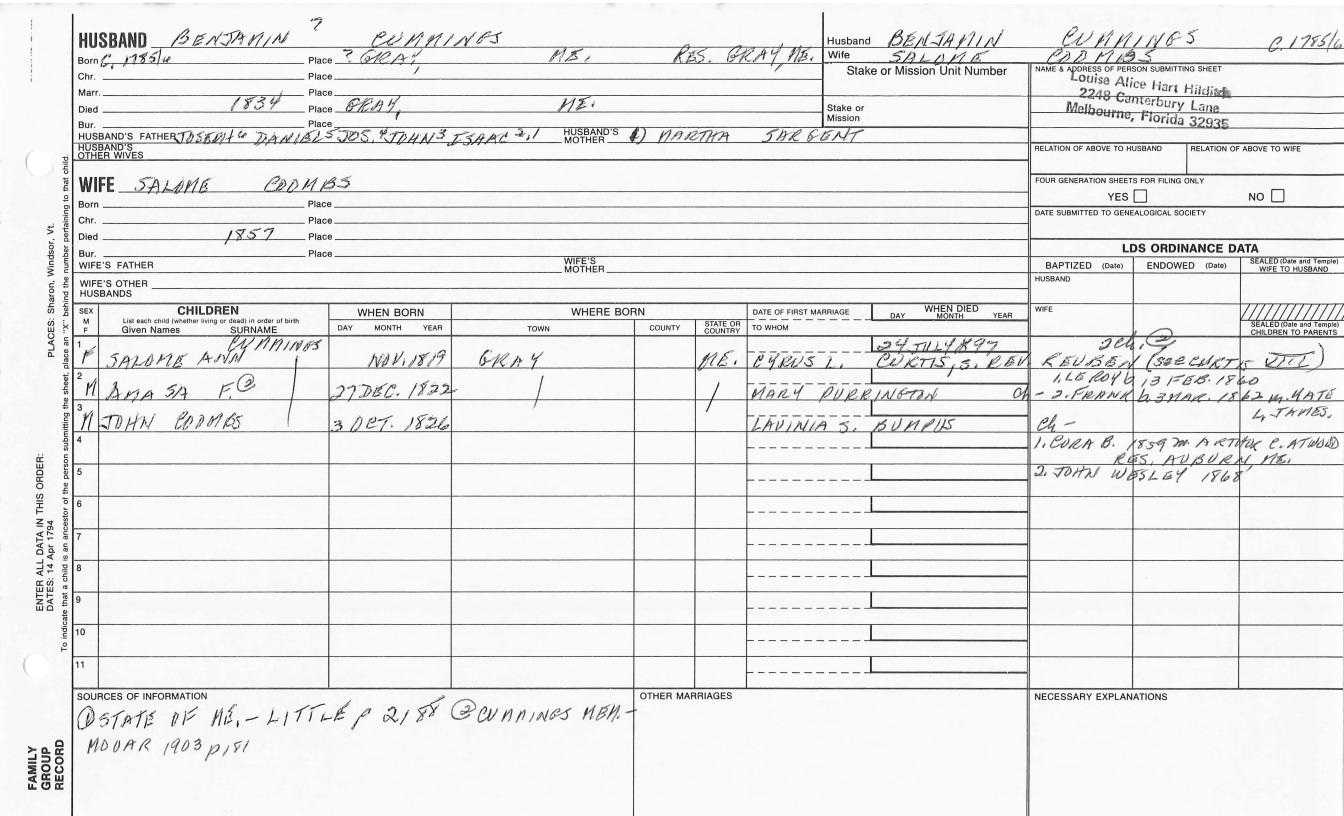 HUSBAND BENJAMIN 7 CUMMINGS
Born C. 1785/6 Place ? GRAY, ME. RES. GRAY, ME.
Chr. Place
Marr. Place
Died 1834 Place GRAY, ME.
Bur. Place
HUSBAND'S FATHER JOSEPH 6 DANIEL 5 JOS. 4 JOHN 3 ISAAC 2,1 HUSBAND'S MOTHER 1) MARTHA SARGENT
HUSBAND'S OTHER WIVES
Husband BENJAMIN CUMMINGS C. 1785/6
Wife SALOME COOMBS
Stake or Mission Unit Number
Stake or Mission
NAME & ADDRESS OF PERSON SUBMITTING SHEET
Louise Alice Hart Hildish
2248 Canterbury Lane
Melbourne, Florida 32935
RELATION OF ABOVE TO HUSBAND RELATION OF ABOVE TO WIFE
FOUR GENERATION SHEETS FOR FILING ONLY
YES NO
DATE SUBMITTED TO GENEALOGICAL SOCIETY
WIFE SALOME COOMBS
Born Place
Chr. Place
Died 1857 Place
Bur. Place
WIFE'S FATHER WIFE'S MOTHER
WIFE'S OTHER HUSBANDS
LDS ORDINANCE DATA
BAPTIZED (Date) ENDOWED (Date) SEALED (Date and Temple) WIFE TO HUSBAND
HUSBAND
WIFE
SEALED (Date and Temple) CHILDREN TO PARENTS
SEX M F CHILDREN WHEN BORN WHERE BORN DATE OF FIRST MARRIAGE WHEN DIED
List each child (whether living or dead) in order of birth
Given Names SURNAME DAY MONTH YEAR TOWN COUNTY STATE OR COUNTRY TO WHOM DAY MONTH YEAR
CUMMINGS
1 F SALOME ANN NOV. 1819 GRAY ME. CYRUS L. CURTIS, S. REV. 24 JULY 1897
2 ch. ②
REUBEN (SEE CURTIS VIII)
2 M AMASA F. ② 27 DEC. 1822 MARY PURRINGTON ch -
1. LEROY b 13 FEB. 1860
2. FRANK b. 3 MAR. 1862 m. KATE L. JAMES.
3 M JOHN COOMBS 3 OCT. 1826 LAVINIA S. BUMPUS
ch -
1. CORA B. 1859 m. ARTHUR C. ATWOOD
RES. AUBURN, ME.
2. JOHN WESLEY 1868
4
5
6
7
8
9
10
11
SOURCES OF INFORMATION
① STATE OF ME. - LITTLE p 2188 ② CUMMINGS MEM. -
MOOAR 1903 p 181
OTHER MARRIAGES
NECESSARY EXPLANATIONS
PLACES: Sharon, Windsor, Vt.
ENTER ALL DATA IN THIS ORDER:
DATES: 14 Apr 1794
To indicate that a child is an ancestor of the person submitting the sheet, place an "X" behind the number pertaining to that child.
FAMILY GROUP RECORD